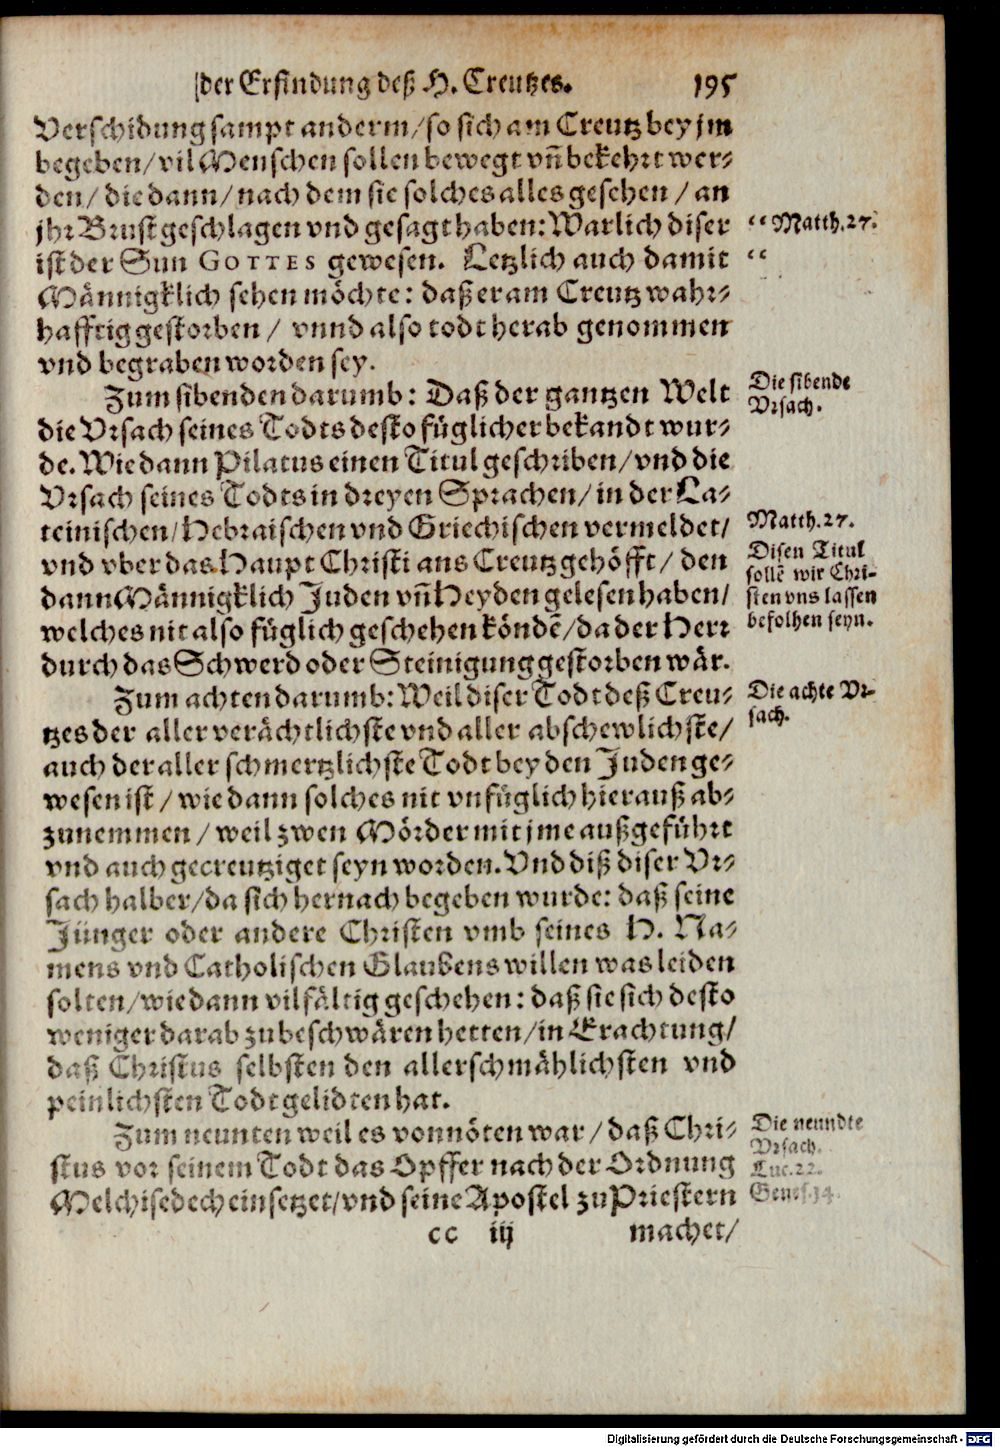 der Erfindung deß H. Creutzes. 195
Verschidung sampt anderm/ so sich am Creutz bey jm
begeben/ vil Menschen sollen bewegt vñ bekehrt wer-
den/ die dann/ nach dem sie solches alles gesehen / an
jhr Brust geschlagen vnd gesagt haben: Warlich diser
“ Matth.27.
ist der Sun GOTTES gewesen. Letzlich auch damit
“
Männigklich sehen möchte: daß er am Creutz wahr-
hafftig gestorben / vnnd also todt herab genommen
vnd begraben worden sey.
Zum sibenden darumb: Daß der gantzen Welt
Die sibende
Vrsach.
die Vrsach seines Todts desto füglicher bekandt wur-
de. Wie dann Pilatus einen Titul geschriben/ vnd die
Vrsach seines Todts in dreyen Sprachen/ in der La-
teinischen/ Hebraischen vnd Griechischen vermeldet/
Matth.27.
vnd vber das Haupt Christi ans Creutz gehöfft/ den
Disen Titul
sollē wir Chri-
dann Männigklich Juden vñ Heyden gelesen haben/
sten vns lassen
welches nit also füglich geschehen köndē/ da der Herr
befolhen seyn.
durch das Schwerd oder Steinigung gestorben wär.
Zum achten darumb: Weil diser Todt deß Creu-
Die achte Vr-
sach.
tzes der aller verächtlichste vnd aller abschewlichste/
auch der aller schmertzlichste Todt bey den Juden ge-
wesen ist / wie dann solches nit vnfüglich hierauß ab-
zunemmen / weil zwen Mörder mit jme außgeführt
vnd auch gecreutziget seyn worden. Vnd diß diser Vr-
sach halber/ da sich hernach begeben wurde: daß seine
Jünger oder andere Christen vmb seines H. Na-
mens vnd Catholischen Glaubens willen was leiden
solten/ wie dann vilfältig geschehen: daß sie sich desto
weniger darab zu beschwären hetten/ in Erachtung/
daß Christus selbsten den allerschmählichsten vnd
peinlichsten Todt gelidten hat.
Zum neunten weil es vonnöten war / daß Chri-
Die neundte
Vrsach.
stus vor seinem Todt das Opffer nach der Ordnung
Luc.22.
Melchisedech einsetzet/ vnd seine Apostel zu Priestern
Genes.14.
cc iij machet/
Digitalisierung gefördert durch die Deutsche Forschungsgemeinschaft - DFG